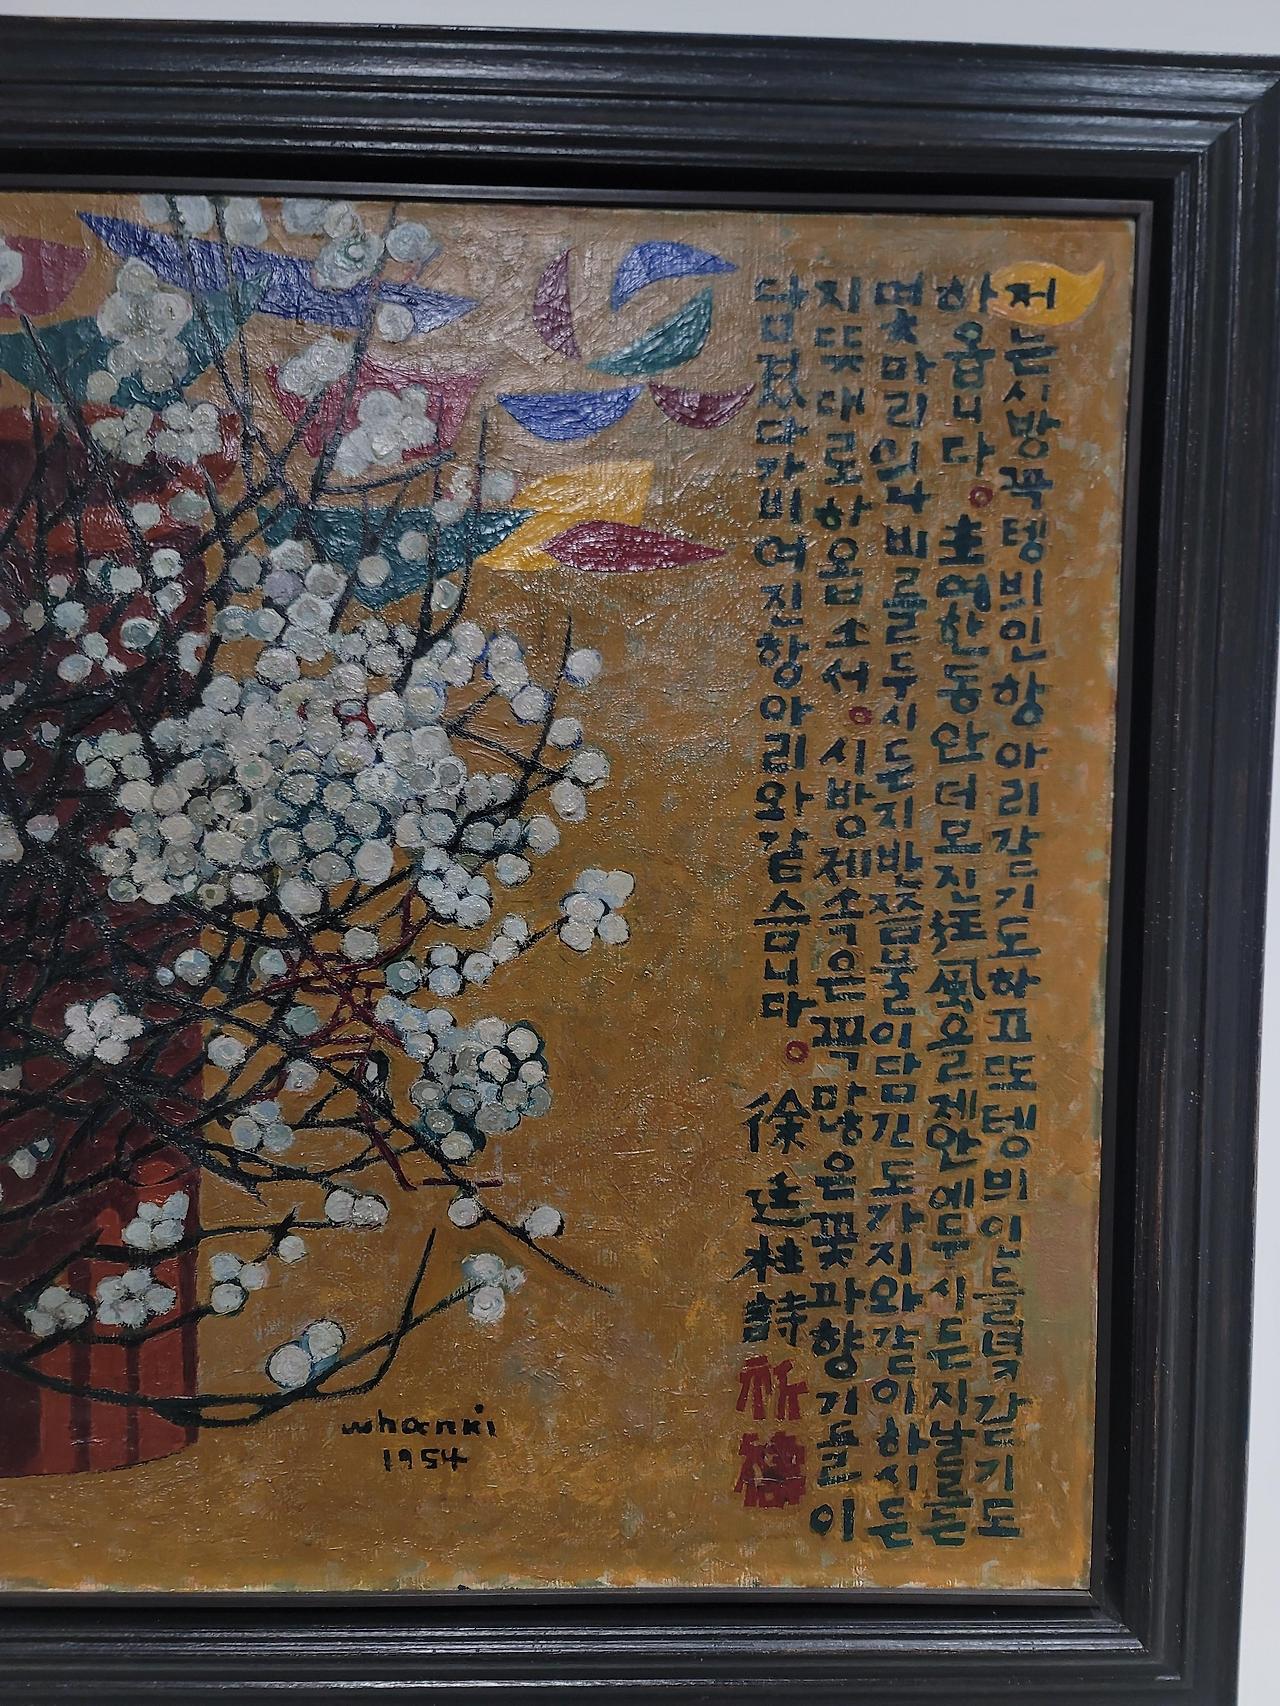 저는시방꼭텡븨인항아리같기도하고또텡븨인들녘같기도
하옵니다。主여한동안더모진狂風을제안에두시든지날르는
몇마리의나비를두시든지반쯤물이담긴도가지와같이하시든
지뜻대로하옵소서。시방제속은꼭많은꽃과향기들이
담겼다가비여진항아리와같습니다。徐廷柱詩
祈禱
whanki
1954